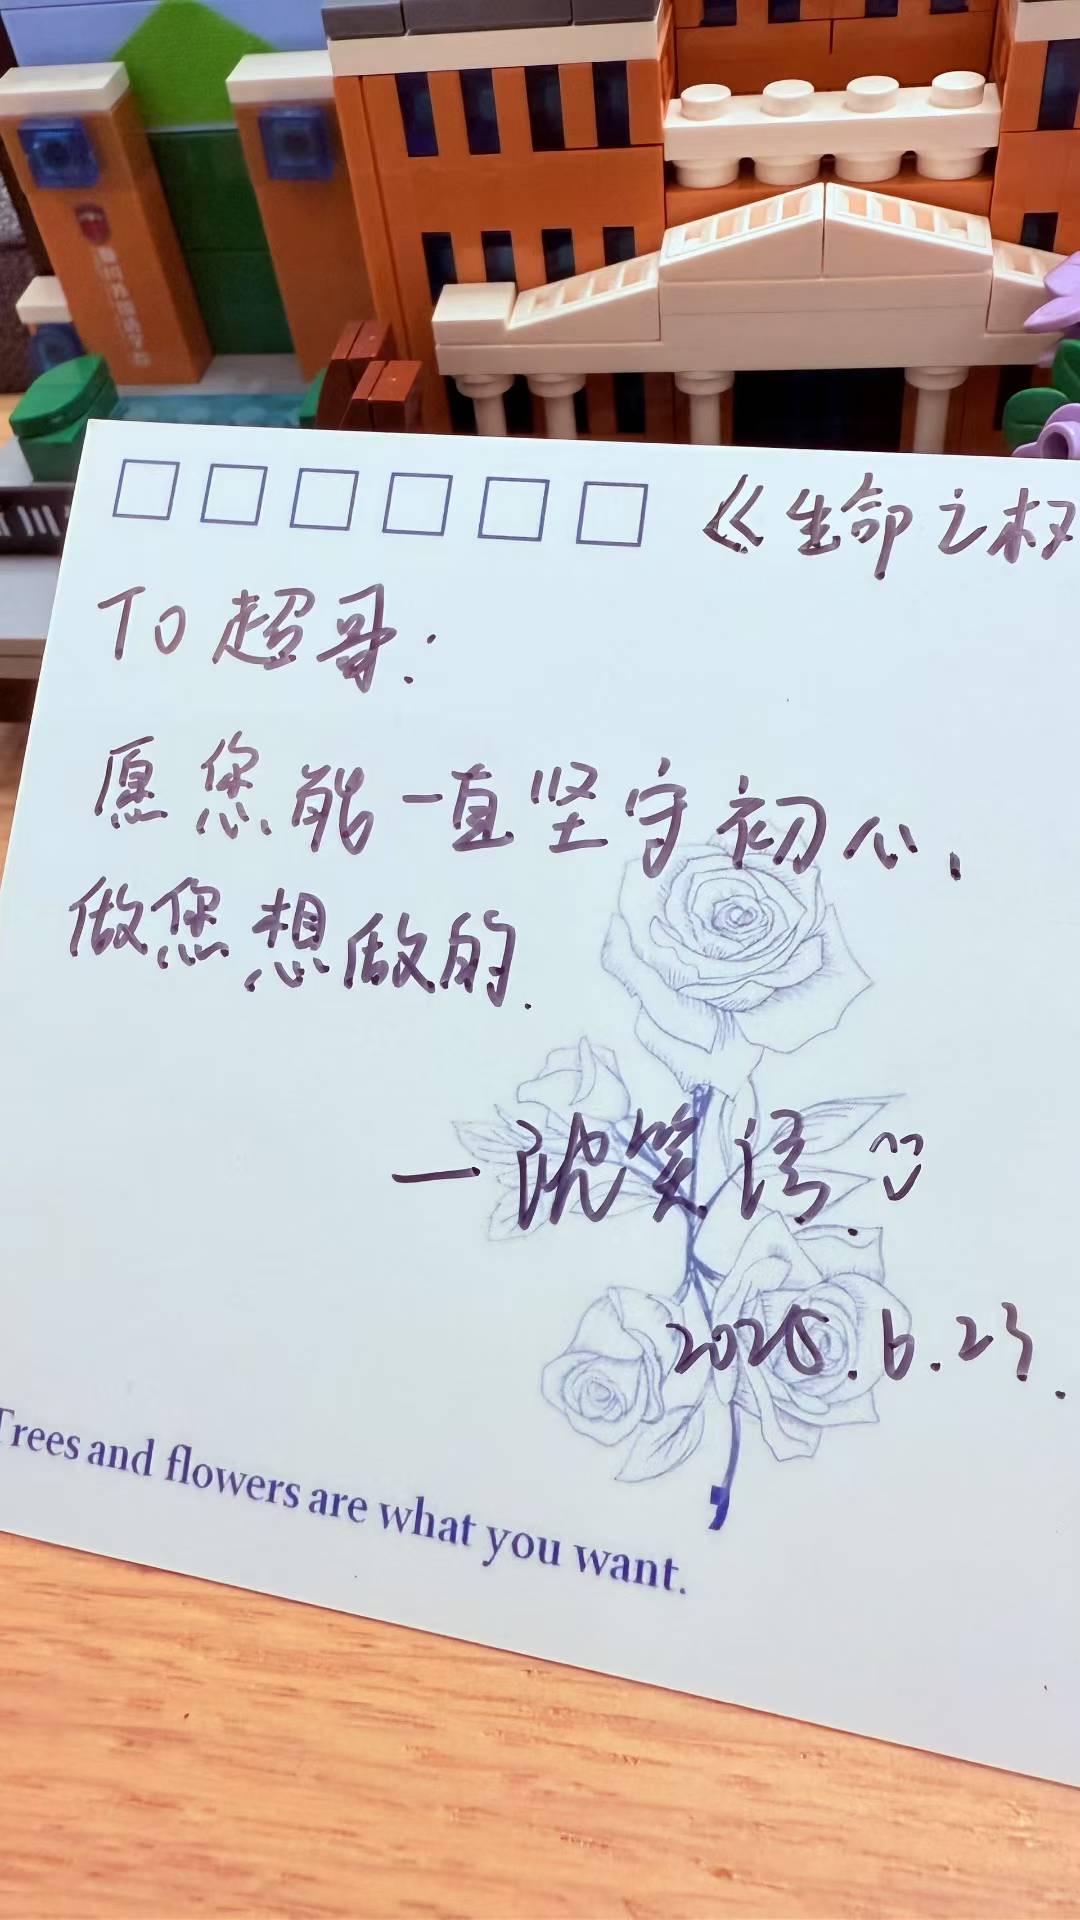 《生命之权
To 超哥:
愿您能一直坚守初心,
做您想做的.
一沈笑语
2025.6.23.
Trees and flowers are what you want.